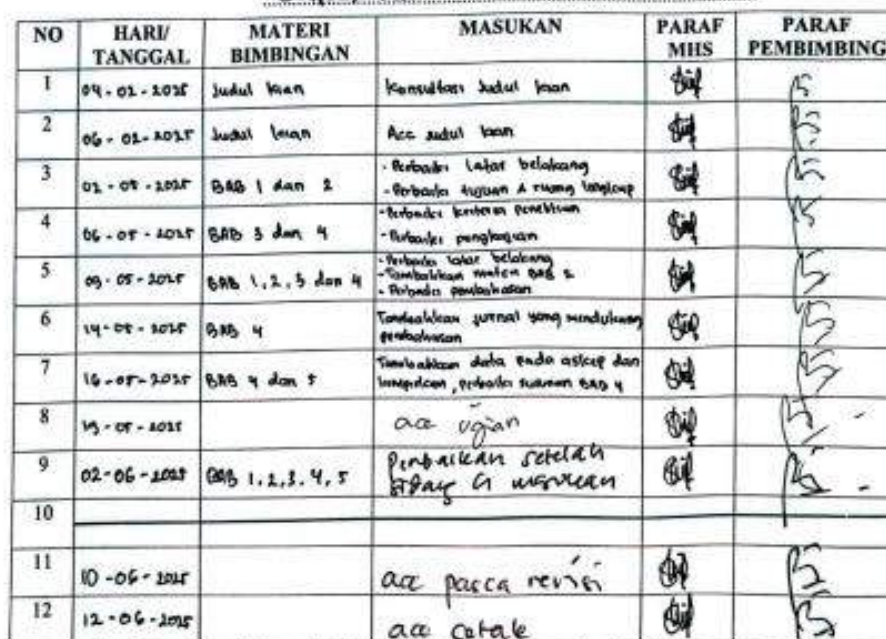 NO HARI/ TANGGAL MATERI BIMBINGAN MASUKAN PARAF MHS PARAF PEMBIMBING
1 04-02-2025 Judul kian Konsultasi Judul kian
2 06-02-2025 Judul kian Acc judul kian
3 02-05-2025 BAB 1 dan 2 - Perbaiki latar belakang
- Perbaiki tujuan & ruang lingkup
4 06-05-2025 BAB 3 dan 4 - Perbaiki kriteria penelitian
- Perbaiki pengkajian
5 09-05-2025 BAB 1, 2, 3 dan 4 - Perbaiki latar belakang
- Tambahkan materi BAB 2
- Perbaiki pembahasan
6 14-05-2025 BAB 4 Tambahkan jurnal yang mendukung
pembahasan
7 16-05-2025 BAB 4 dan 5 Tambahkan data pada askep dan
lampirkan, perbaiki susunan BAB 4
8 19-05-2025 acc ujian
9 02-06-2025 BAB 1, 2, 3, 4, 5 Perbaikan setelah
sidang masukan
10
11 10-06-2025 acc pasca revisi
12 12-06-2025 acc cetak